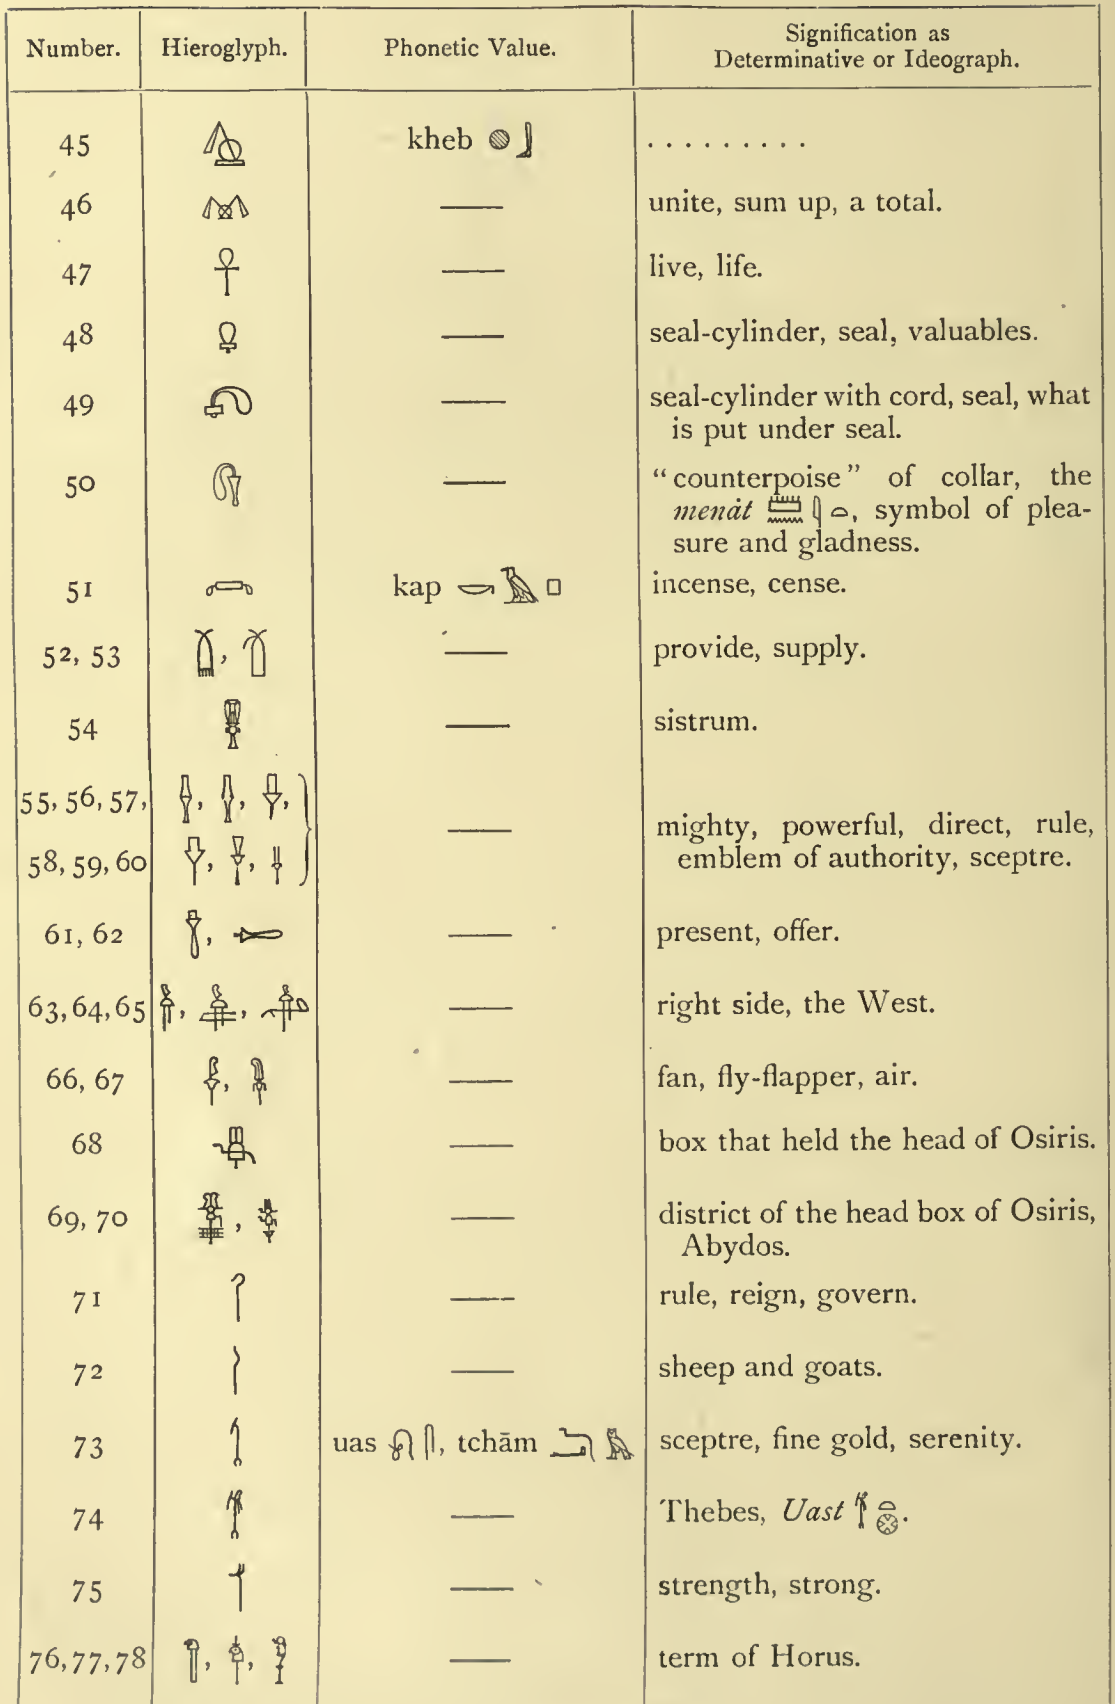 Number. Hieroglyph. Phonetic Value. Signification as
Determinative or Ideograph.
45 kheb . . . . . . . . .
46 —— unite, sum up, a total.
47 𓋹 —— live, life.
48 —— seal-cylinder, seal, valuables.
49 —— seal-cylinder with cord, seal, what
is put under seal.
50 —— “counterpoise” of collar, the
menȧt 𓏠𓈖𓇋𓏏, symbol of plea-
sure and gladness.
51 kap 𓎡𓄿𓊪 incense, cense.
52, 53 —— provide, supply.
54 —— sistrum.
55, 56, 57,
58, 59, 60 —— mighty, powerful, direct, rule,
emblem of authority, sceptre.
61, 62 —— present, offer.
63, 64, 65 —— right side, the West.
66, 67 —— fan, fly-flapper, air.
68 —— box that held the head of Osiris.
69, 70 —— district of the head box of Osiris,
Abydos.
71 𓋾 —— rule, reign, govern.
72 —— sheep and goats.
73 𓌀 uas 𓍯𓋴, tchām sceptre, fine gold, serenity.
74 𓌂 —— Thebes, Uast 𓌂𓏏𓊖.
75 —— strength, strong.
76, 77, 78 —— term of Horus.